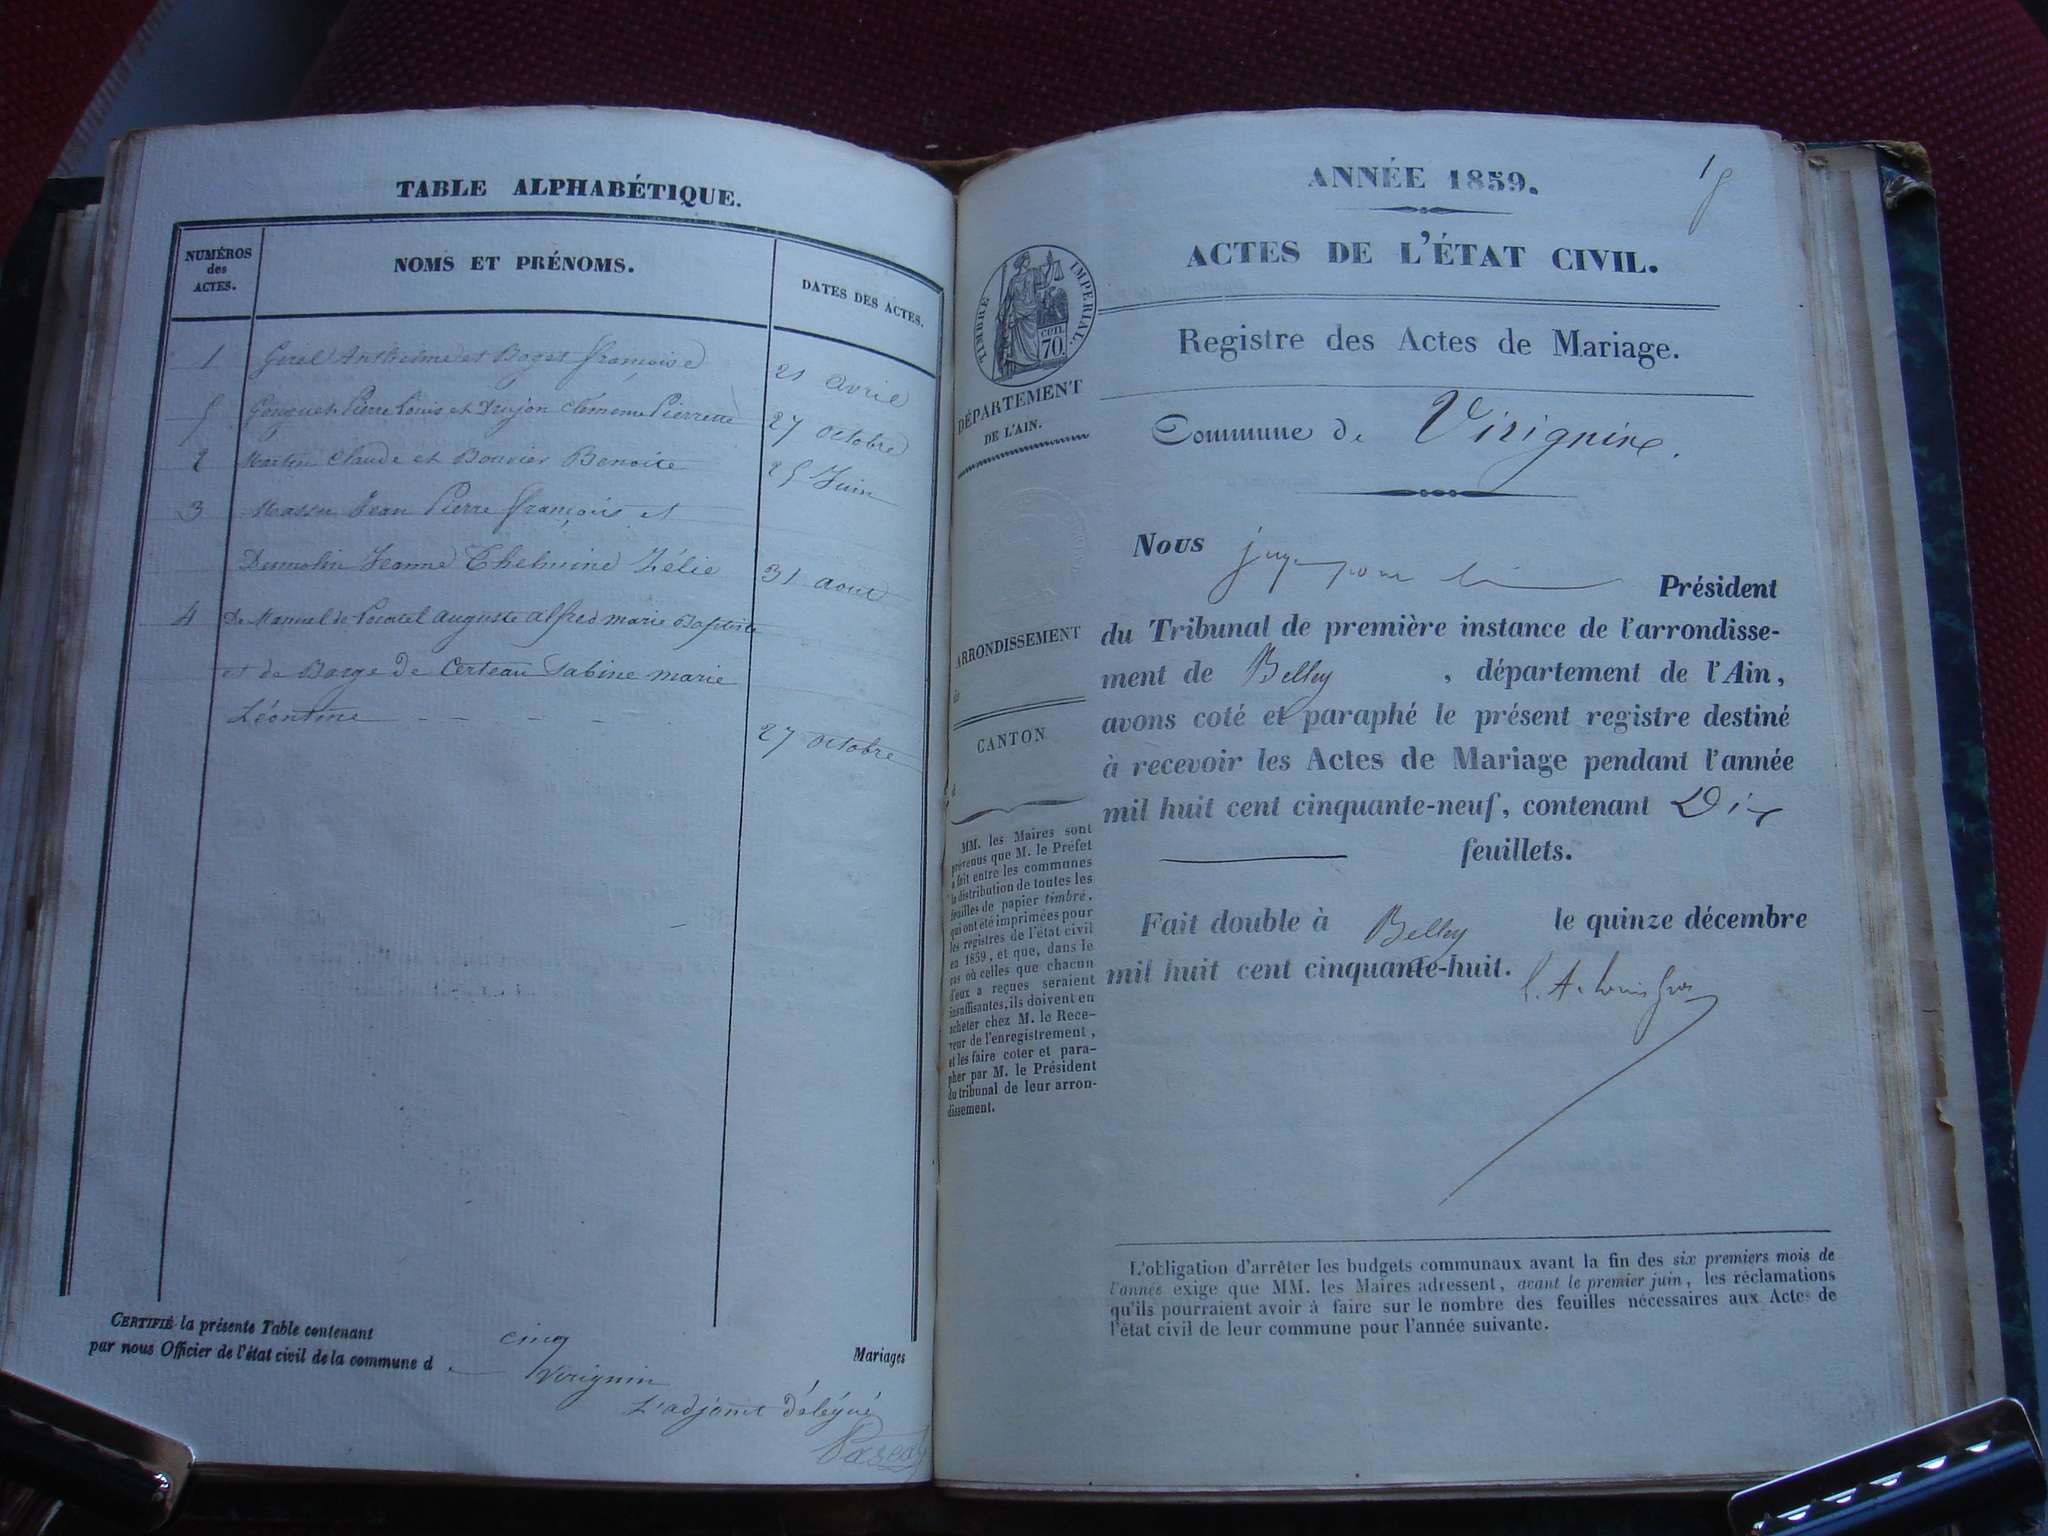 TABLE ALPHABÉTIQUE.
NUMÉROS
des
ACTES.
NOMS ET PRÉNOMS.
DATES DES ACTES.
1 Girel Anthelme et Boget françoise 21 avril
5 Gouguet Pierre Louis et Drujon Clémence Pierrette 27 octobre
2 Martin Claude et Bouvier Benoite 25 Juin
3 Massu Jean Pierre françois et
Dumolin Jeanne Thelmine Zélie 31 aout
4 De Manuel de Locatel auguste alfred marie Baptiste
et de Barge De Certeau Sabine marie
Léontine 27 octobre
CERTIFIÉ la présente Table contenant cinq Mariages
par nous Officier de l'état civil de la commune d Virignin
L'adjoint délégué
ANNÉE 1859.
1
ACTES DE L'ÉTAT CIVIL.
TIMBRE IMPÉRIAL.
CEN.
70
Registre des Actes de Mariage.
DÉPARTEMENT
DE L'AIN.
Commune de Virignin.
ARRONDISSEMENT
de
CANTON
d
MM. les Maires sont
prévenus que M. le Préfet
a fait entre les communes
la distribution de toutes les
feuilles de papier timbré,
qui ont été imprimées pour
les registres de l'état civil
en 1859, et que, dans le
cas où celles que chacun
d'eux a reçues seraient
insuffisantes, ils doivent en
acheter chez M. le Rece-
veur de l'enregistrement,
et les faire coter et para-
pher par M. le Président
du tribunal de leur arron-
dissement.
Nous juge pour le Président
du Tribunal de première instance de l'arrondisse-
ment de Belley, département de l'Ain,
avons coté et paraphé le présent registre destiné
à recevoir les Actes de Mariage pendant l'année
mil huit cent cinquante-neuf, contenant Dix
feuillets.
Fait double à Belley le quinze décembre
mil huit cent cinquante-huit.
L'obligation d'arrêter les budgets communaux avant la fin des six premiers mois de
l'année exige que MM. les Maires adressent, avant le premier juin, les réclamations
qu'ils pourraient avoir à faire sur le nombre des feuilles nécessaires aux Actes de
l'état civil de leur commune pour l'année suivante.